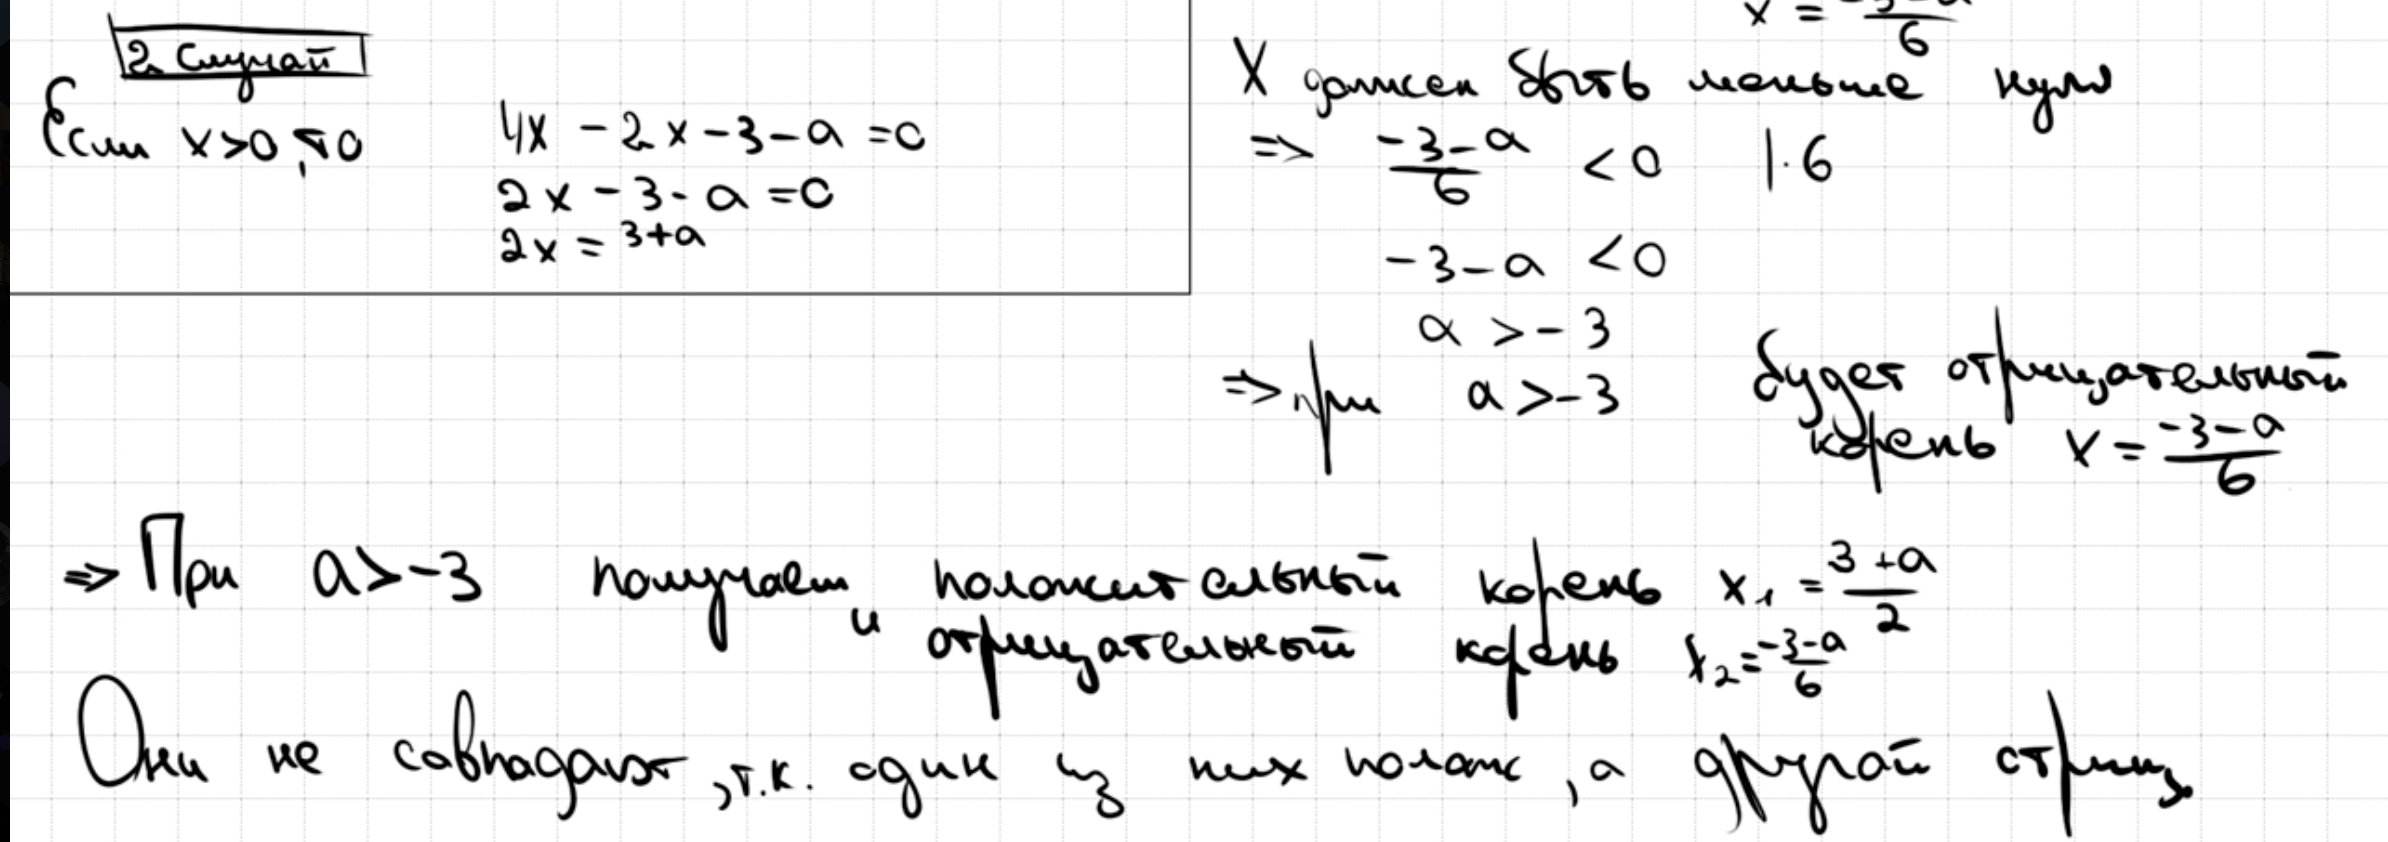 2. Случай
Если x>0, то
4x - 2x - 3 - a = 0
2x - 3 - a = 0
2x = 3+a
x = \frac{-3-a}{6}
X должен быть меньше нуля
=> \frac{-3-a}{6} < 0 |·6
-3-a < 0
a > -3
=> при a > -3 будет отрицательный
корень x = \frac{-3-a}{6}
=> При a > -3 получаем положительный корень x₁ = \frac{3+a}{2}
и отрицательный корень x₂ = \frac{-3-a}{6}
Они не совпадают, т.к. один из них полож, а другой отриц.